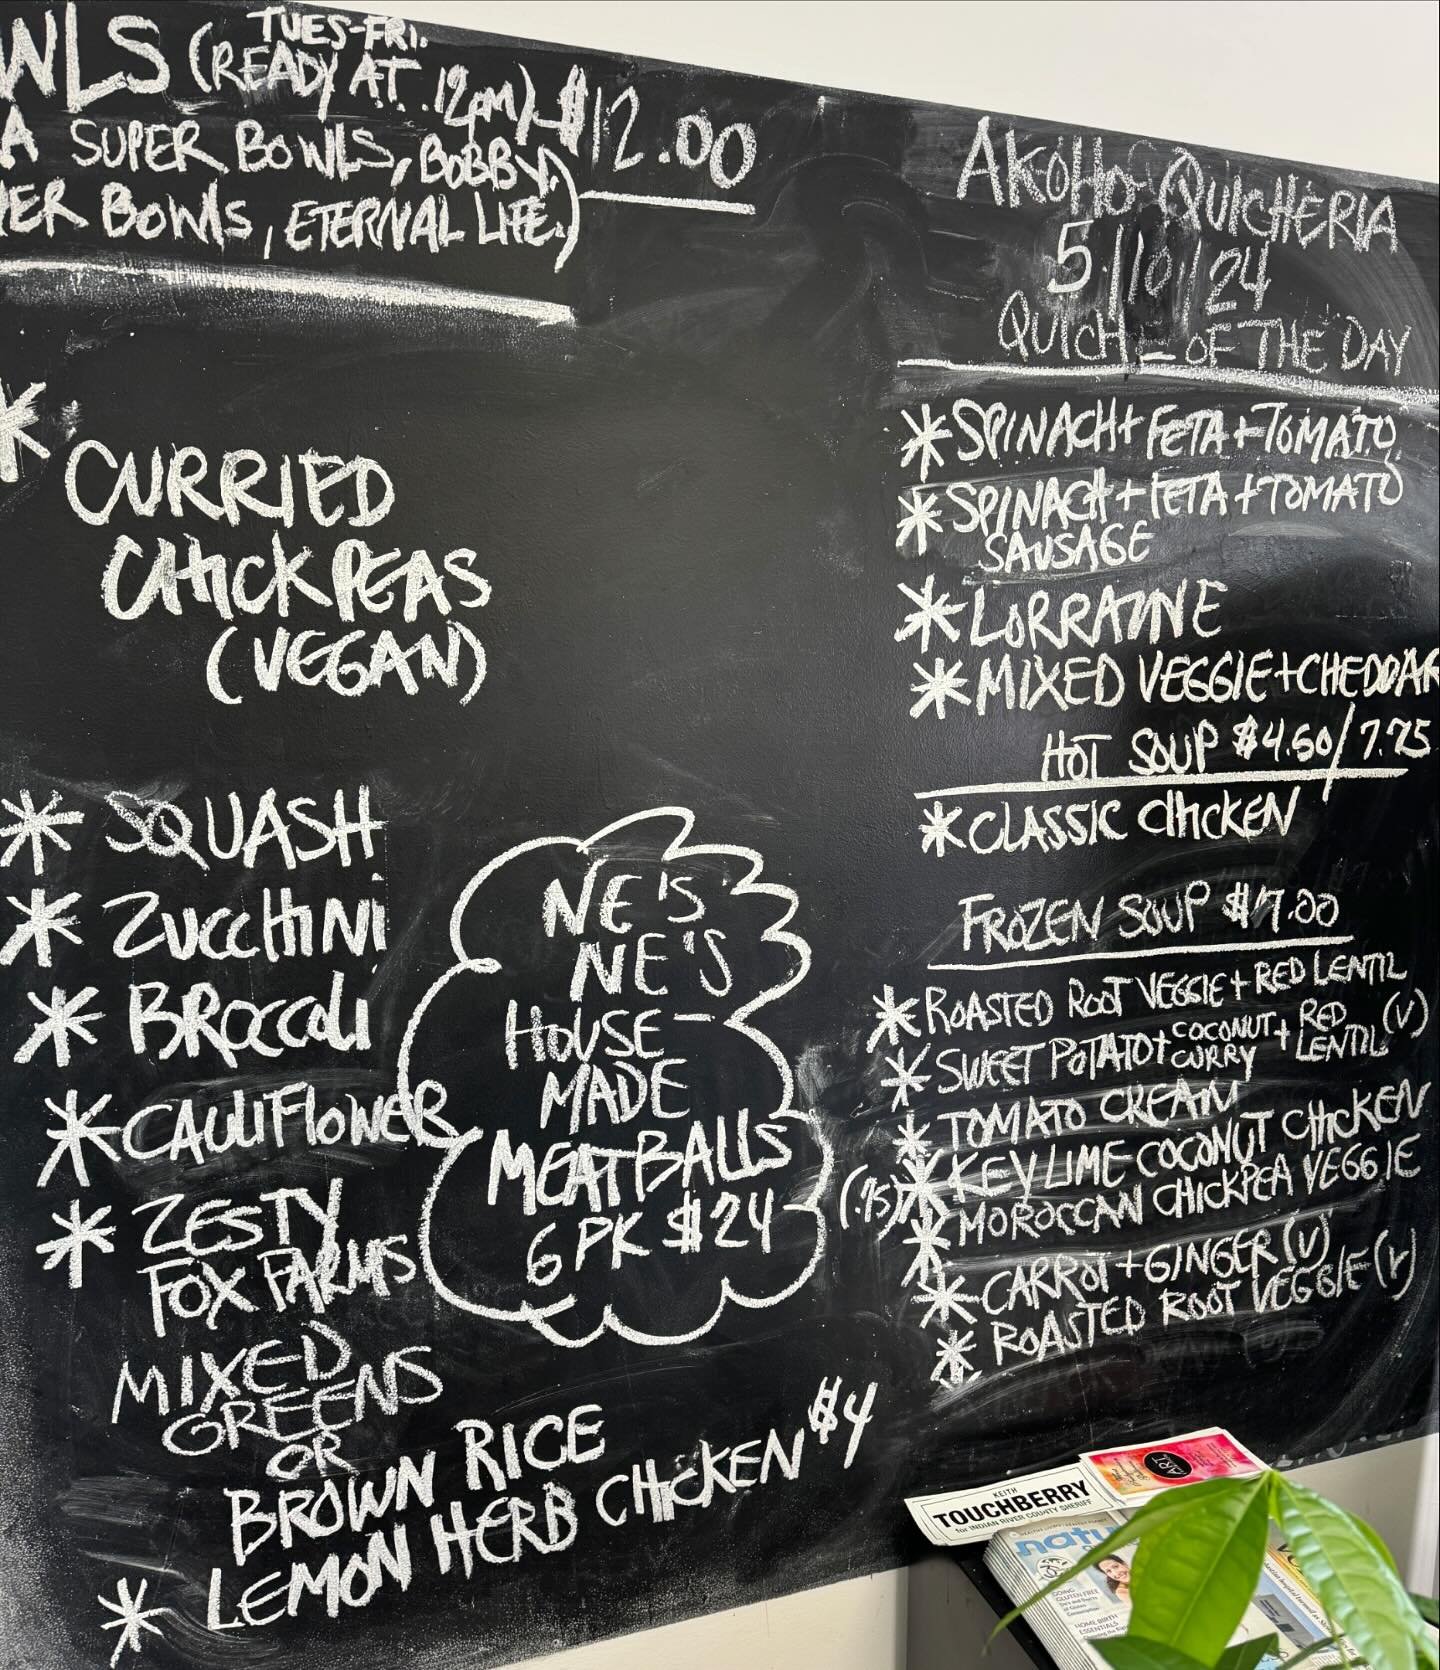 WLS (READY AT 12PM) - $12.00
TUES-FRI.
A SUPER BOWLS, BOBBY
ER BOWLS, ETERNAL LIFE.)
* CURRIED
CHICKPEAS
(VEGAN)
* SQUASH
* ZUCCHINI
* BROCCOLI
* CAULIFLOWER
* ZESTY
FOX FARMS
MIXED
GREENS
OR
BROWN RICE
* LEMON HERB CHICKEN $4
NE'S
NE'S
HOUSE-
MADE
MEATBALLS
6 PK $24
AKOHO QUICHERIA
5/10/24
QUICH_ OF THE DAY
* SPINACH + FETA + TOMATO
* SPINACH + FETA + TOMATO
SAUSAGE
* LORRAINE
* MIXED VEGGIE + CHEDDAR
HOT SOUP $4.50/7.75
* CLASSIC CHICKEN
FROZEN SOUP $17.00
* ROASTED ROOT VEGGIE + RED LENTIL
* SWEET POTATO + COCONUT CURRY + RED LENTIL (V)
* TOMATO CREAM
(.75) * KEY LIME COCONUT CHICKEN
* MOROCCAN CHICKPEA VEGGIE
* CARROT + GINGER (V)
* ROASTED ROOT VEGGIE (V)
ART
KEITH
TOUCHBERRY
for INDIAN RIVER COUNTY SHERIFF
natu
GOING
GLUTEN FREE
HOME BIRTH
ESSENTIALS